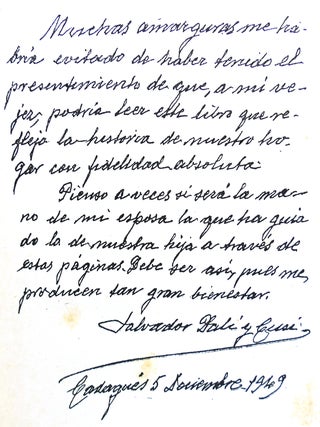 Muchas amarguras me ha-
bría evitado de haber tenido el
presentimiento de que, a mi ve-
jez, podría leer este libro que re-
fleja la historia de nuestro ho-
gar con fidelidad absoluta.
Pienso a veces si será la ma-
no de mi esposa la que ha guia
do la de nuestra hija a través de
estas páginas. Debe ser así, pues me
producen tan gran bienestar.
Salvador Dalí y Cusi
Cadaqués 5 Diciembre 1949